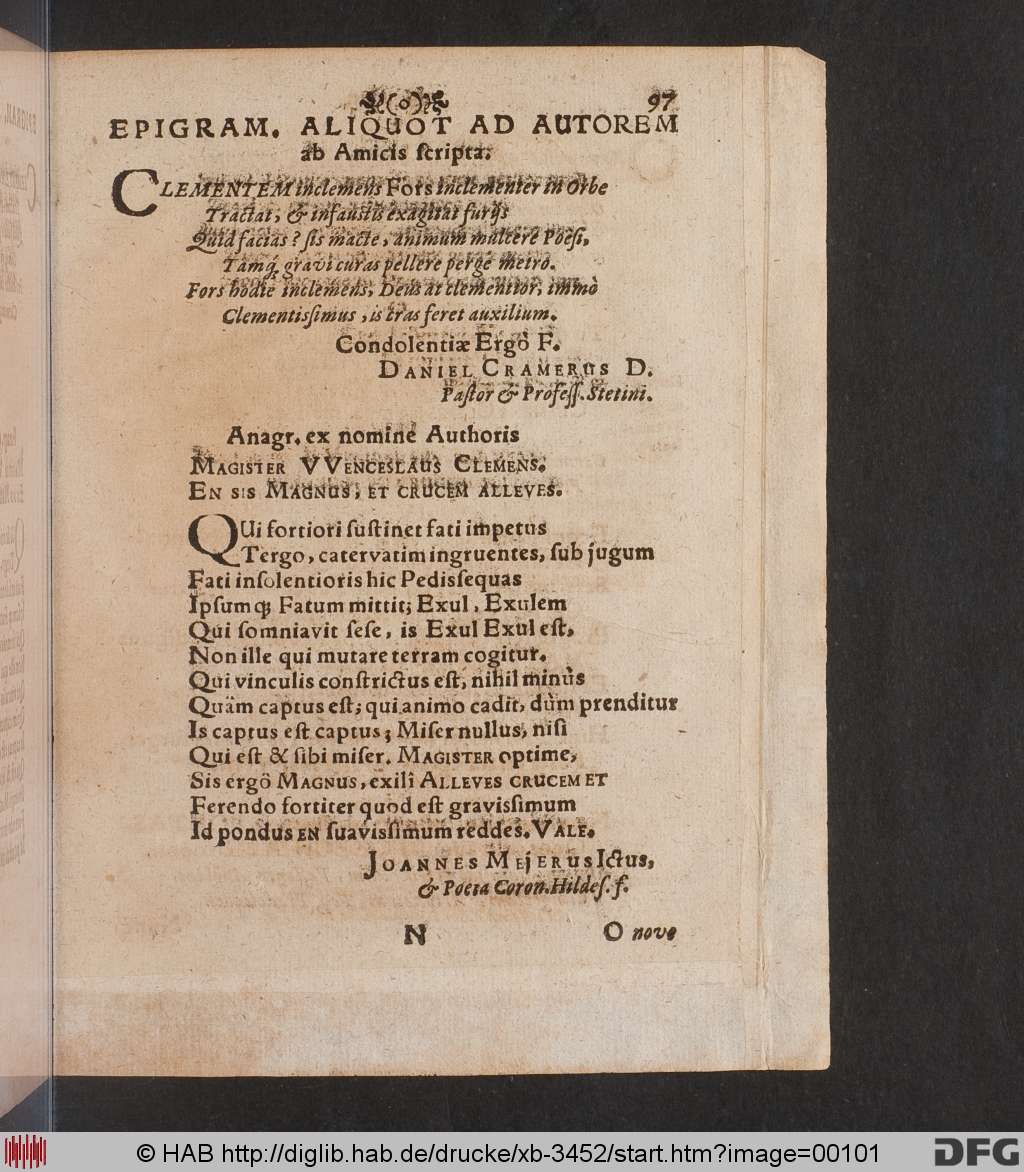 (o) 97
EPIGRAM. ALIQUOT AD AUTOREM
ab Amicis ſcripta.
CLEMENTEM inclemens Fors inclementer in Orbe
Tractat, & infauſtis exagitat furijs
Quid facias? ſis macte, animum mulcere Poëſi,
Tamq́, gravi curas pellere perge metro.
Fors hodiè inclemens, Deus at clementior, immò
Clementiſſimus, is cras feret auxilium.
Condolentiæ Ergò F.
DANIEL CRAMERUS D.
Paſtor & Profeſſ. Stetini.
Anagr. ex nomine Authoris
MAGISTER VVENCESLAUS CLEMENS.
EN SIS MAGNUS, ET CRUCEM ALLEVES.
QUi fortiori ſuſtinet fati impetus
Tergo, catervatim ingruentes, ſub jugum
Fati inſolentioris hic Pediſſequas
Ipſumq; Fatum mittit; Exul, Exulem
Qui ſomniavit ſeſe, is Exul Exul eſt,
Non ille qui mutare terram cogitur.
Qui vinculis conſtrictus eſt, nihil minùs
Quàm captus eſt; qui animo cadit, dùm prenditur
Is captus eſt captus; Miſer nullus, niſi
Qui eſt & ſibi miſer. MAGISTER optime,
Sis ergô MAGNUS, exilî ALLEVES CRUCEM ET
Ferendo fortiter quod eſt graviſſimum
Id pondus EN ſuaviſſimum reddes. VALE.
JOANNES MEJERUS Ictus,
& Poeta Coron. Hildeſ. f.
N O nove
© HAB http://diglib.hab.de/drucke/xb-3452/start.htm?image=00101 DFG